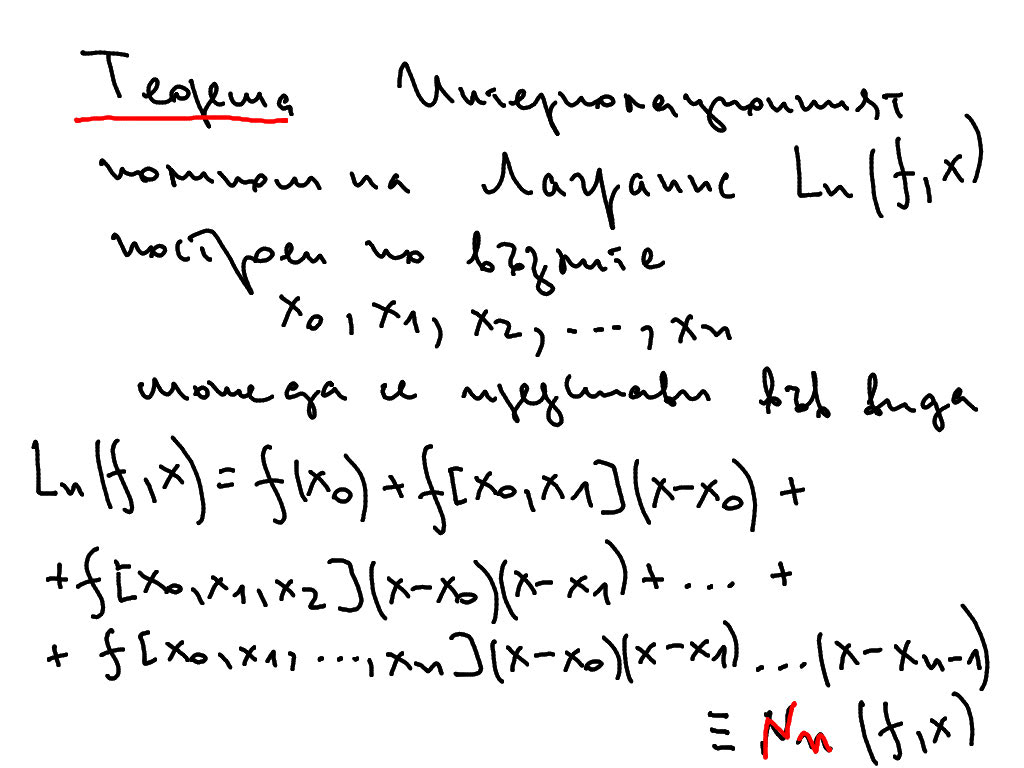 Теорема Интерполационният
полином на Лагранж Ln(f,x)
построен по възлите
x0, x1, x2, ..., xn
може да се представи във вида
Ln(f,x) = f(x0) + f[x0,x1](x-x0) +
+ f[x0,x1,x2](x-x0)(x-x1) + ... +
+ f[x0,x1,...,xn](x-x0)(x-x1)...(x-xn-1)
≡ Nn(f,x)